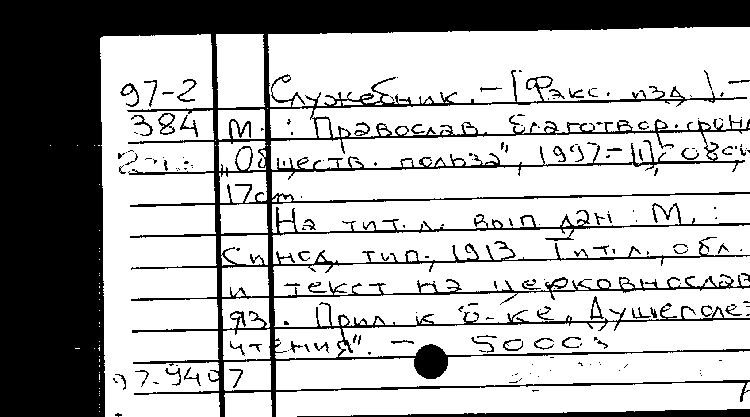 97-2 Служебник. — [Факс. изд.]. —
384 М. : Православ. благотвор. фонд
„Обществ. польза", 1997. — [1], 208 с.
17 см.
На тит. л. вып. дан : М. :
Синод. тип., 1913. Тит. л., обл.
и текст на церковнослав
яз. Прил. к б-ке „Душеполез
чтения". — 5000 э
97-9407